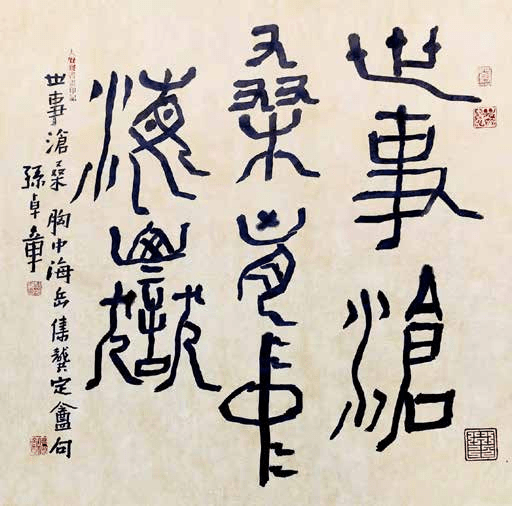 世事滄
桑胸中
海嶽
世事滄桑胸中海岳集龔定盦句
孫卓章